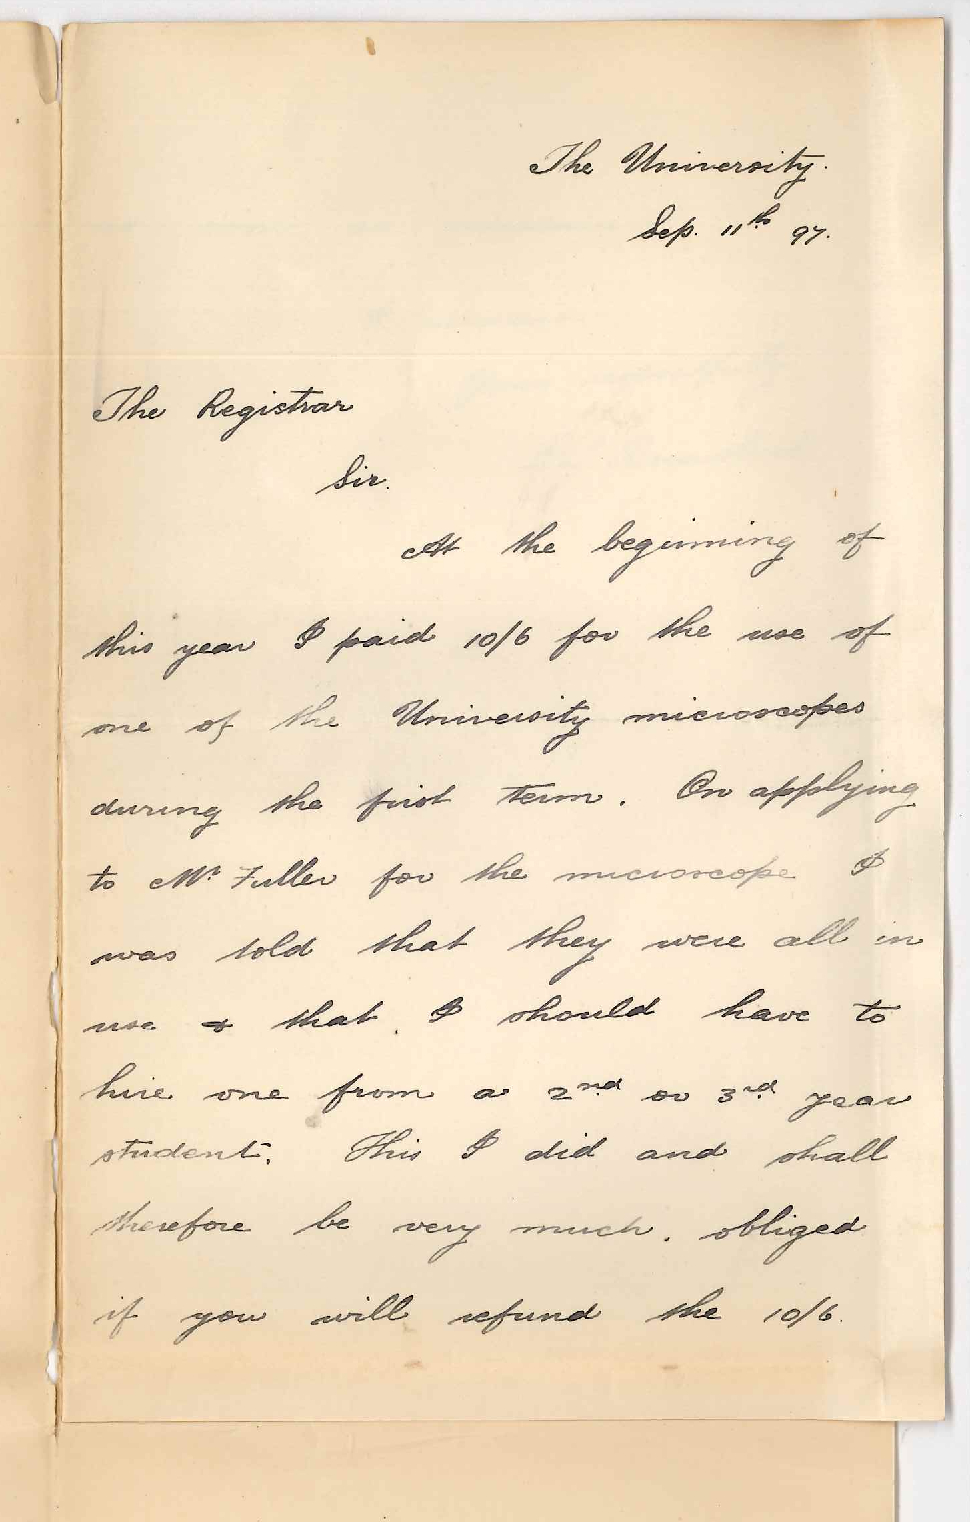 The University.
Sep. 11th 97.
The Registrar
Sir.
At the beginning of
this year I paid 10/6 for the use of
one of the University microscopes
during the first term. On applying
to Mr Fuller for the microscope I
was told that they were all in
use & that I should have to
hire one from a 2nd or 3rd year
student. This I did and shall
therefore be very much obliged
if you will refund the 10/6.